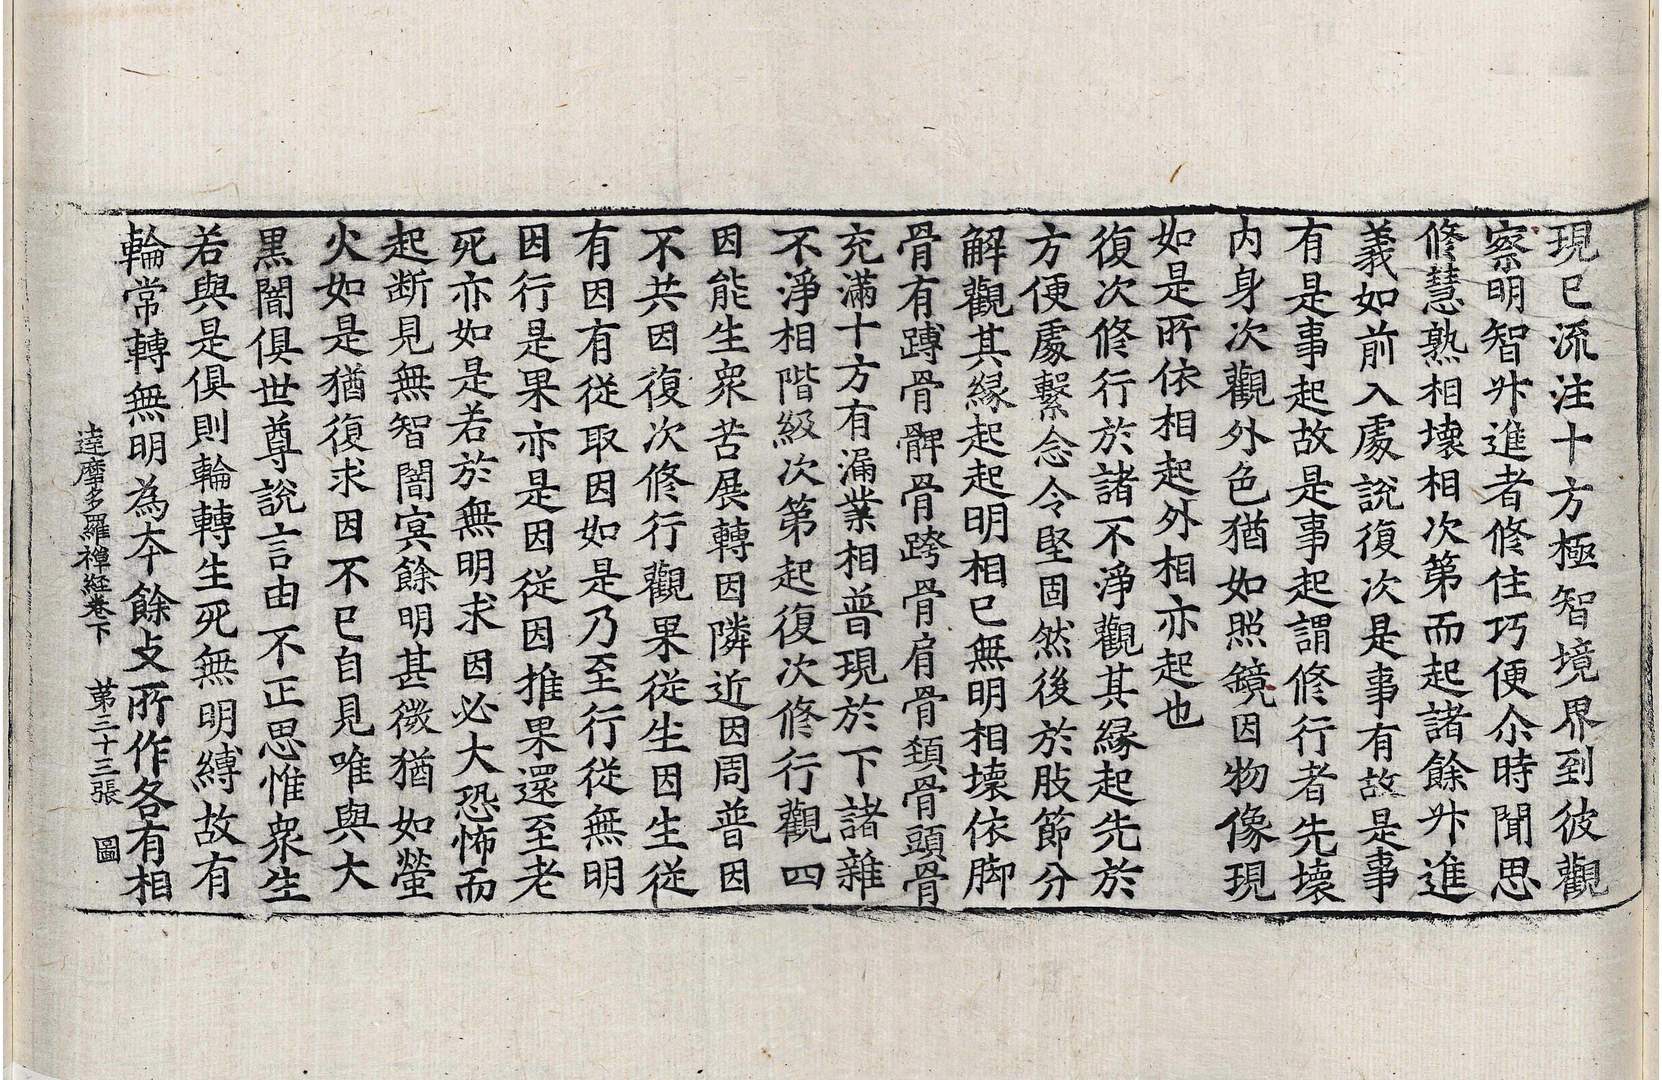 現已流注十方極智境界到彼觀
察明智升進者修住巧便尒時聞思
修慧熟相壞相次第而起諸餘升進
義如前入處說復次是事有故是事
有是事起故是事起謂修行者先壞
内身次觀外色猶如照鏡因物像現
如是所依相起外相亦起也
復次修行於諸不淨觀其緣起先於
方便處繫念令堅固然後於肢節分
解觀其緣起起明相已無明相壞依脚
骨有䏝骨髀骨跨骨肩骨頸骨頭骨
充滿十方有漏業相普現於下諸雜
不淨相階級次第起復次修行觀四
因能生衆苦展轉因隣近因周普因
不共因復次修行觀果從生因生從
有因有從取因如是乃至行從無明
因行是果亦是因從因推果還至老
死亦如是若於無明求因必大恐怖而
起断見無智闇㝠餘明甚微猶如螢
火如是猶復求因不已自見唯與大
黑闇俱世尊說言由不正思惟衆生
若與是俱則輪轉生死無明縛故有
輪常轉無明為本餘支所作各有相
達摩多羅禪經卷下 第三十三張 圖